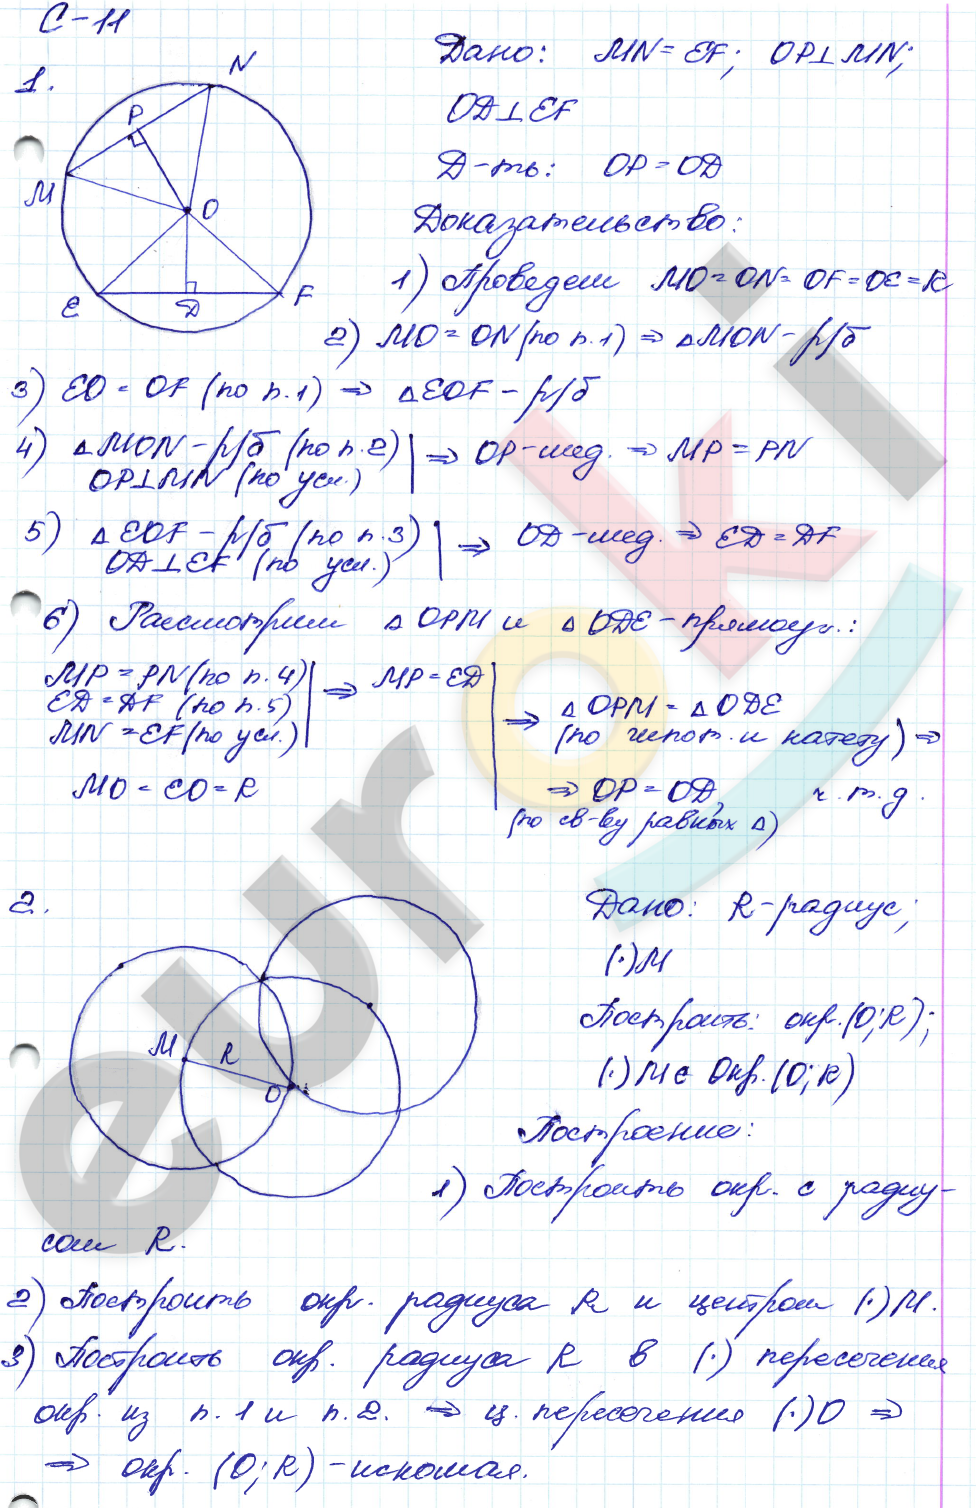 С-11
1.
N
P
M
O
E
D
F
Дано: MN = EF; OP⊥MN;
OD⊥EF
Д-ть: OP = OD
Доказательство:
1) Проведем MO = ON = OF = OE = R
2) MO = ON (по п.1) ⇒ △MON – р/б
3) EO = OF (по п.1) ⇒ △EOF – р/б
4) △MON – р/б (по п.2) | ⇒ OP – мед. ⇒ MP = PN
OP⊥MN (по усл.)
5) △EOF – р/б (по п.3) | ⇒ OD – мед. ⇒ ED = DF
OD⊥EF (по усл.)
6) Рассмотрим △OPM и △ODE – прямоуг.:
MP = PN (по п.4) | ⇒ MP = ED
ED = DF (по п.5)
MN = EF (по усл.)
MO = EO = R
⇒ △OPM = △ODE
(по гипот. и катету) ⇒
⇒ OP = OD, ч.т.д.
(по св-ву равных △)
2.
M
R
O
Дано: R – радиус;
(·)M
Построить: окр.(O;R);
(·)M ∈ Окр.(O;R)
Построение:
1) Построить окр. с радиу-
сом R.
2) Построить окр. радиуса R и центром (·)M.
3) Построить окр. радиуса R в (·) пересечения
окр. из п.1 и п.2. ⇒ ц. пересечения (·)O ⇒
⇒ окр. (O;R) – искомая.
euroki